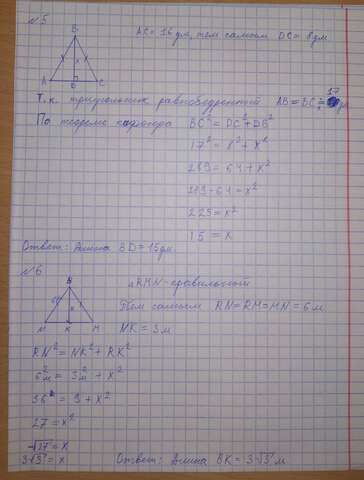 №5
B
A D C
x
AC = 16 дм, тем самым DC = 8 дм
17
Т.к. треугольник равнобедренный AB = BC =
По теореме пифагора BC² = DC² + DB²
17² = 8² + x²
289 = 64 + x²
289 - 64 = x²
225 = x²
15 = x
Ответ: Длина BD = 15 дм.
№6
△RMN - правильный
Тем самым RN = RM = MN = 6 м
NK = 3 м
RN² = NK² + RK²
6² = 3² + x²
36 = 9 + x²
27 = x²
√27 = x
3√3 = x
Ответ: Длина RK = 3√3 м